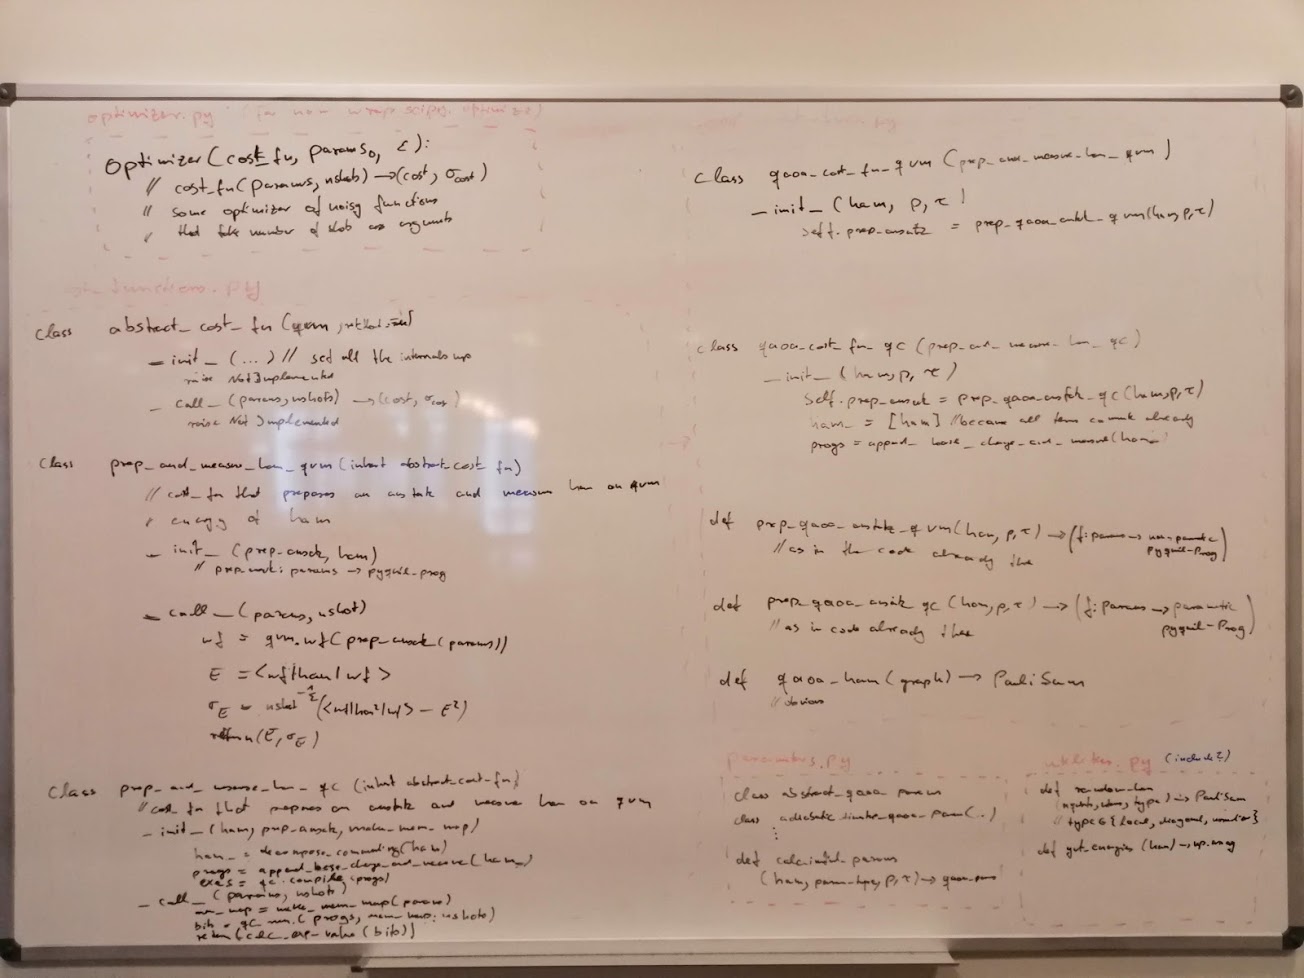 optimizer.py (for now wrap scipy.optimize)
optimizer(cost_fn, params₀, ε):
// cost_fn(params, nshots) → (cost, σ_cost)
// some optimizer of noisy functions
// that take number of shots as arguments
functions.py
class abstract_cost_fn (
__init__(...) // set all the internals up
raise NotImplemented
__call__(params, nshots) → (cost, σ_cost)
raise NotImplemented
class prep_and_measure_ham_qvm (inherit abstract_cost_fn)
// cost_fn that prepares an ansatz and measures ham on qvm
// energy of ham
__init__(prep_ansatz, ham)
// prep_ansatz: params → pyquil-prog
__call__(params, nshot)
wf = qvm.wf(prep_ansatz(params))
E = <wf|ham|wf>
σ_E = nshot^-½ (<wf|ham²|wf> - E²)
return(E, σ_E)
class prep_and_measure_ham_qc (inherit abstract_cost_fn)
// cost_fn that prepares an ansatz and measure ham on qvm
__init__(ham, prep_ansatz, make_mem_map)
ham_ = decompose_commuting(ham)
progs = append_base_change_and_measure(ham_)
exes = qc.compile(progs)
__call__(params, nshots)
mem_map = make_mem_map(params)
bits = qc.run(progs, mem_map, nshots)
return (calc_exp_value(bits))
class qaoa_cost_fn_qvm (prep_and_measure_ham_qvm)
__init__(ham, p, τ)
self.prep_ansatz = prep_qaoa_ansatz_qvm(ham,p,τ)
class qaoa_cost_fn_qc (prep_and_measure_ham_qc)
__init__(ham,p, τ)
self.prep_ansatz = prep_qaoa_ansatz_qc(ham,p,τ)
ham_ = [ham] // because all terms commute already
progs = append_base_change_and_measure(ham_
def prep_qaoa_ansatz_qvm(ham, p, τ) → (f: params → non-parametric
pyquil-Prog)
// as in the code already there
def prep_qaoa_ansatz_qc (ham, p, τ) → (f: params → parametric
pyquil-Prog)
// as in code already there
def qaoa_ham(graph) → PauliSum
// obvious
parameters.py
class abstract_qaoa_params
class adiabatic_timestep_qaoa_param(..)
⋮
def calc_initial_params
(ham, param_type, p, τ) →
utilities.py (include?)
def random_ham
(nqubits, type) → PauliSum
// type ∈ {local, diagonal,
def get_energies (ham) → np.array